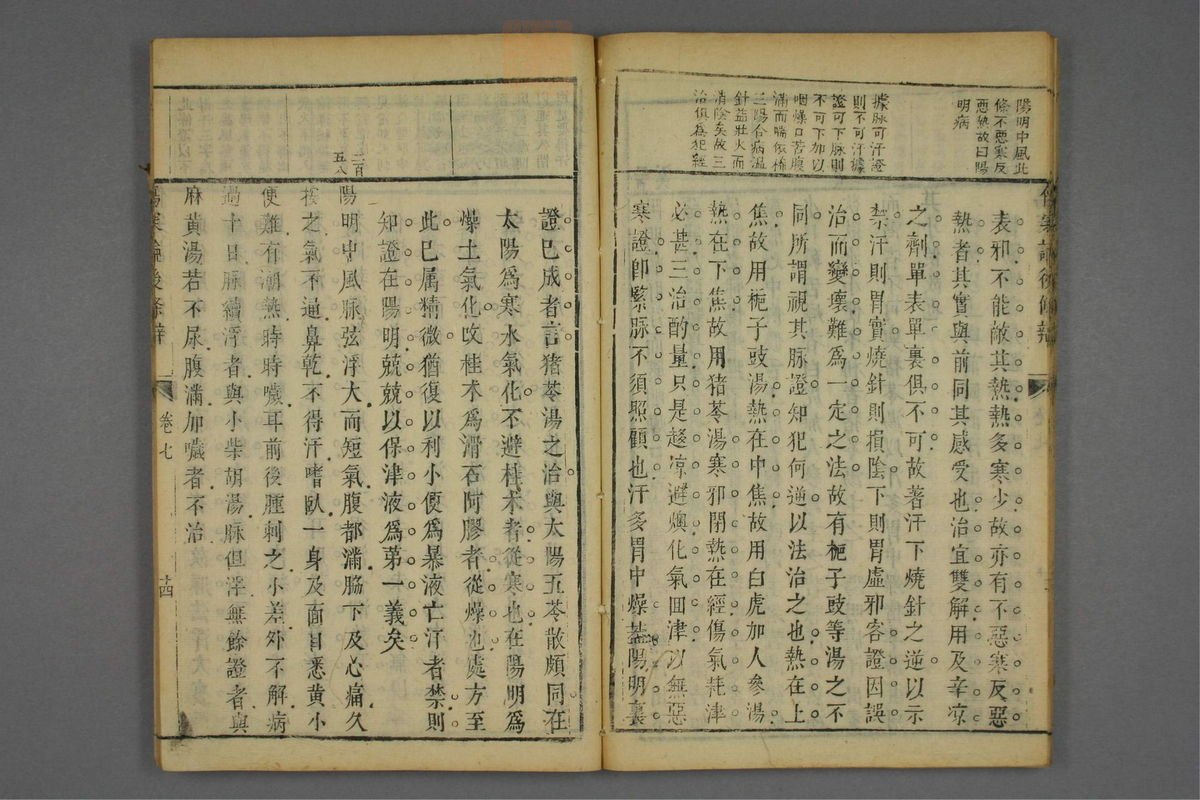 陽明中風此
條不惡寒反
惡熱故曰陽
明病
據脉可汗證
則不可汗據
證可下脉則
不可下加以
咽燥口苦腹
滿而喘
三陽合病溫
針益壯火而
消陰矣故三
治俱爲犯經
傷寒論後條辨
表邪不能敵其熱熱多寒少故亦有不惡寒反惡
熱者其實與前同其感受也治宜雙解用及辛凉
之劑單表單裏俱不可故著汗下燒針之逆以示
禁汗則胃實燒針則損陰下則胃虛邪客證因誤
治而變壞難爲一定之法故有梔子豉等湯之不
同所謂視其脉證知犯何逆以法治之也熱在上
焦故用梔子豉湯熱在中焦故用白虎加人參湯
熱在下焦故用猪苓湯寒邪閉熱在經傷氣耗津
必甚三治酌量只是趍凉避燠化氣回津以無惡
寒證卽緊脉不須照顧也汗多胃中燥葢陽明裏
證已成者言猪苓湯之治與太陽五苓散頗同在
太陽爲寒水氣化不避桂术者從寒也在陽明爲
燥土氣化攺桂术爲滑石阿膠者從燥也處方至
此已属精微猶復以利小便爲暴液亡汗者禁則
知證在陽明兢兢以保津液爲第一義矣
二百
五八
陽明中風脉弦浮大而短氣腹都滿脇下及心痛久
按之氣不通鼻乾不得汗嗜臥一身及面目悉黄小
便難有潮熱時時噦耳前後腫刺之小差外不解病
過十日脉續浮者與小柴胡湯脉但浮無餘證者與
麻黄湯若不尿腹滿加噦者不治
傷寒論後條辨
卷七
十四